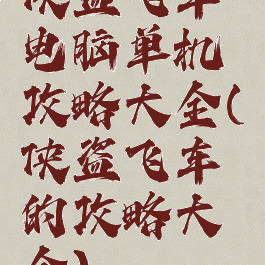 侠盗飞车
电脑单机
攻略大全(
侠盗飞车
的攻略大
全)